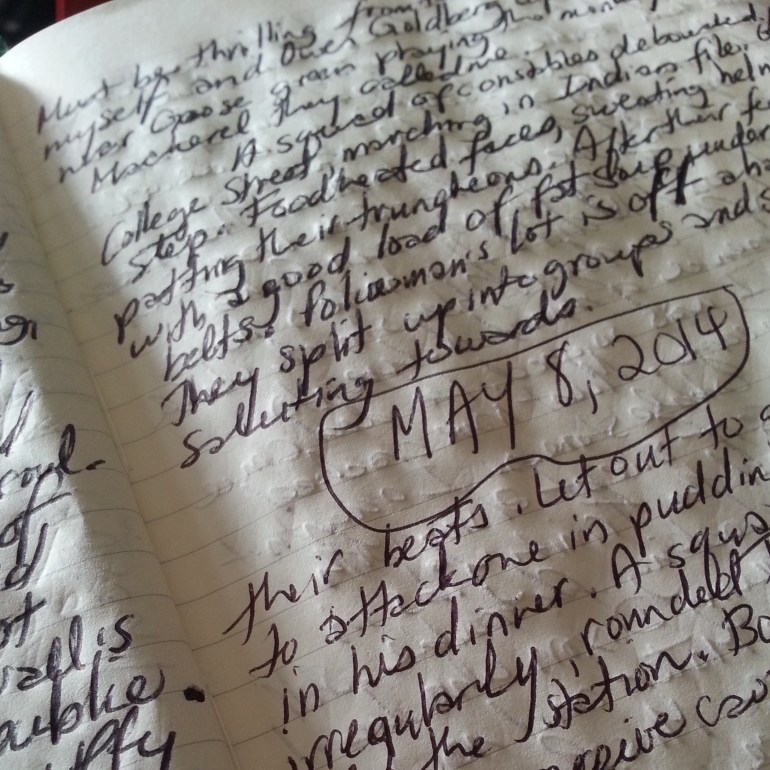 roul.
of
d
ot
vall is
aublie
uffy
Must be thrilling from
myself and Owen Goldberg
near Goose green playing the monk
Mackerel they called me.
A squad of constables debouched
College Street, marching in Indian file.
step. Foodheated faces, sweating helm
patting their truncheons. After their fe
with a good load of fat soup under
belts. Policeman's lot is off a ha
They split up into groups and s
saluting towards
MAY 8, 2014
their beats. Let out to g
to attack one in puddin
in his dinner. A squa
irregularly, rounded
the station. Bo
ceive cav